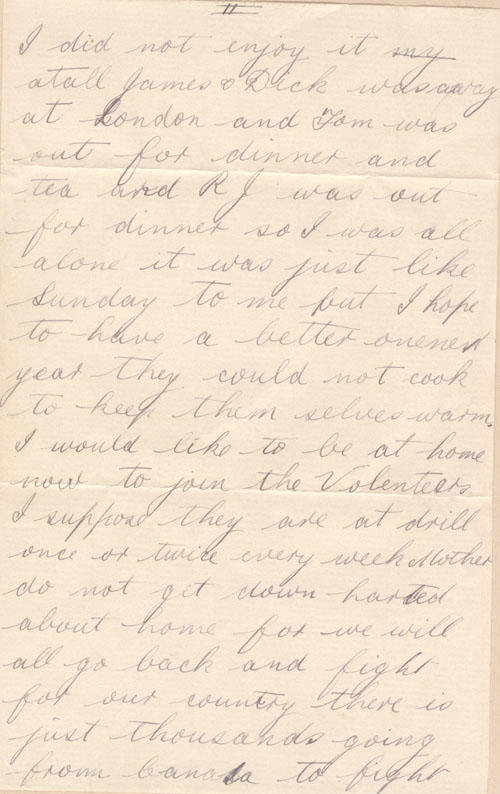 11
I did not enjoy it my
atall James & Dick was away
at London and Tom was
out for dinner and
tea and R J was out
for dinner so I was all
alone it was just like
Sunday to me but I hope
to have a better one next
year they could not cook
to keep them selves warm.
I would like to be at home
now to join the Volenteers
I suppose they are at drill
once or twice every week Mother
do not get down harted
about home for we will
all go back and fight
for our country there is
just thousands going
from Canada to fight